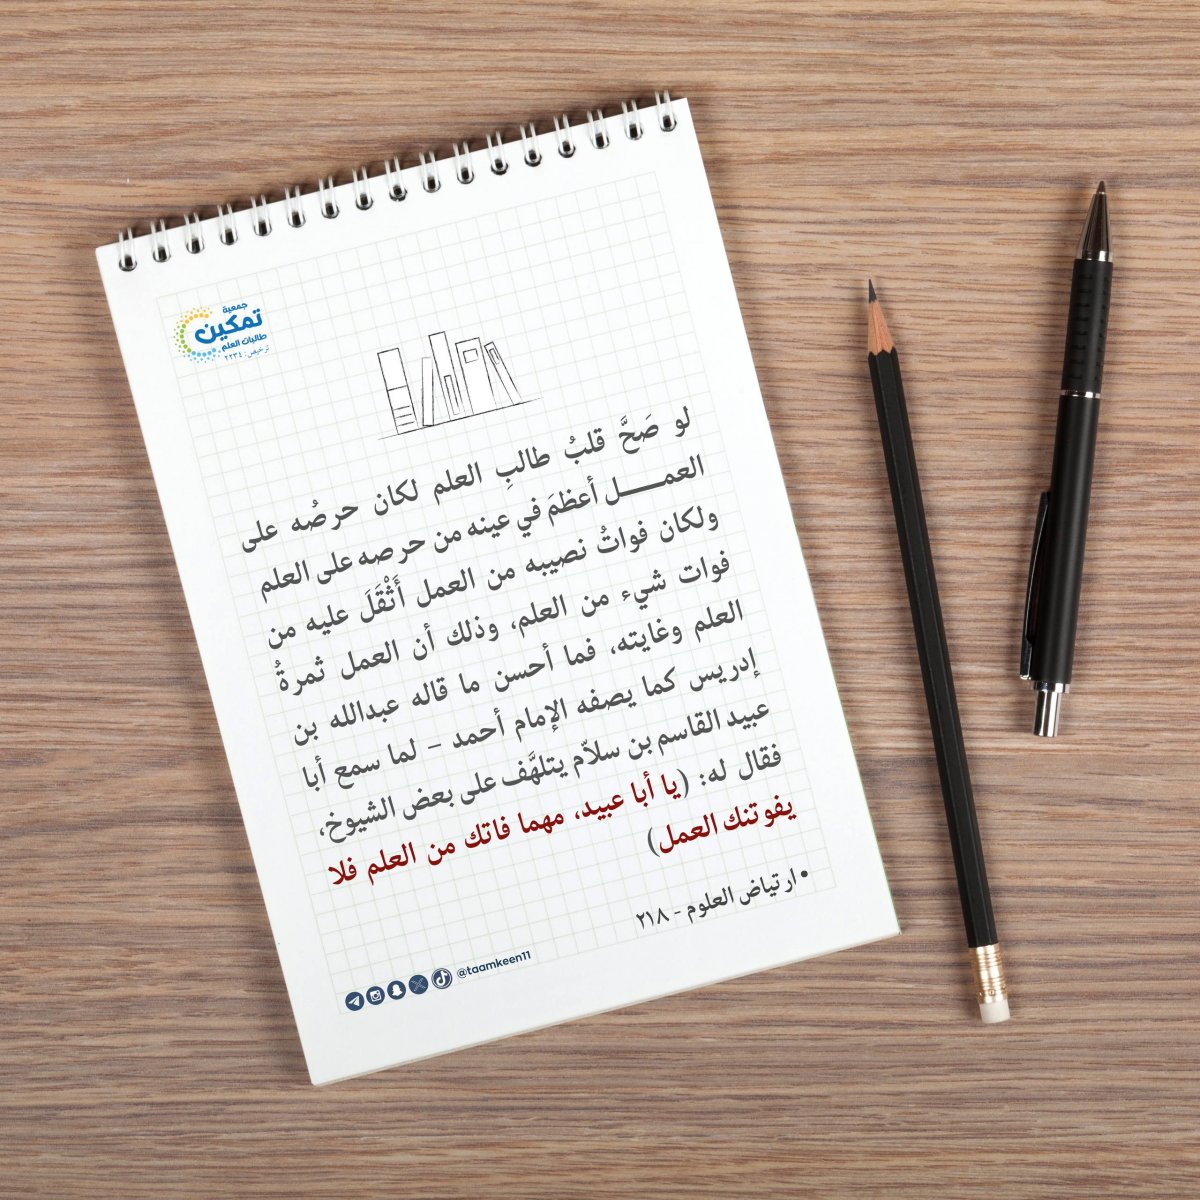 جمعية
تمكين
طالبات العلم
ترخيص: ٢٢٣٤
لو صَحَّ قلبُ طالبِ العلم لكان حرصُه على
العمـــل أعظمَ في عينه من حرصه على العلم
ولكان فواتُ نصيبه من العمل أَثْقَلَ عليه من
فوات شيء من العلم، وذلك أن العمل ثمرةُ
العلم وغايته، فما أحسن ما قاله عبدالله بن
إدريس كما يصفه الإمام أحمد - لما سمع أبا
عبيد القاسم بن سلاّم يتلهَّف على بعض الشيوخ،
فقال له: (يا أبا عبيد، مهما فاتك من العلم فلا
يفوتنك العمل)
•ارتياض العلوم - ٢١٨
@taamkeen11